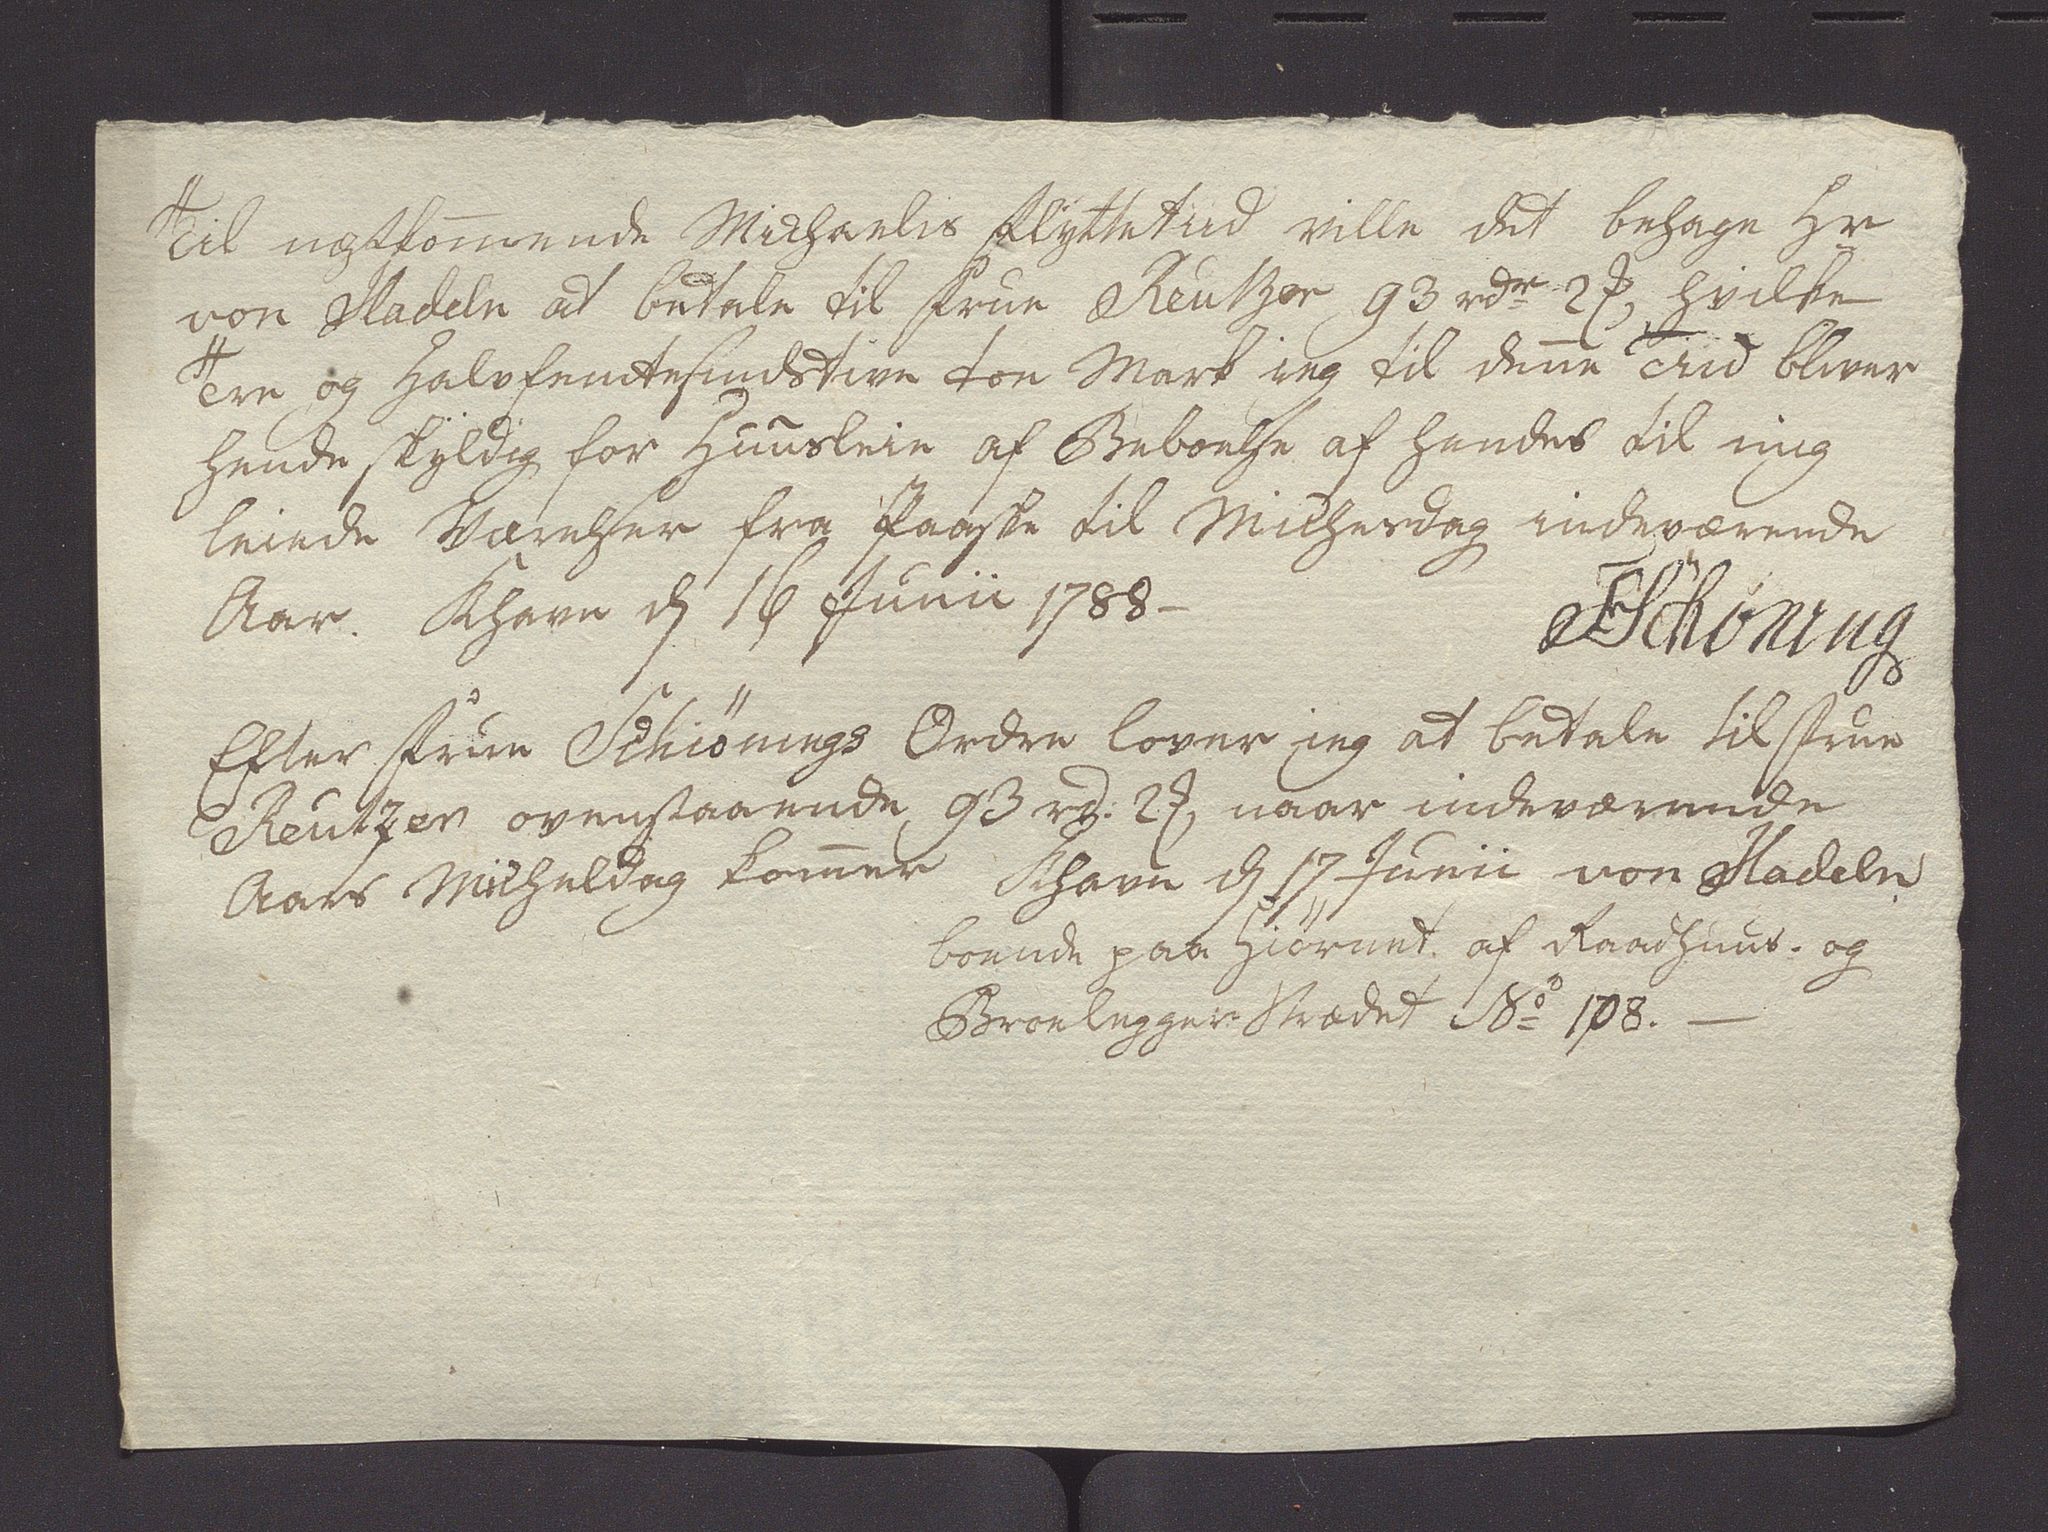 Til næstkom̄ende Michaelis Flÿttetiid ville det behage Hr
von Hadeln at betale til Frue Reutzer 93 rdr 2 ꝳ, hvilke
Tre og Halvfemtesindstive toe Mark ieg til den̄e Tiid bliver
hende skÿldig for Huusleie af Beboelse af hendes til mig
leiede Værelser fra Paaske til Michesdag indeværende
Aar. Khavn d 16 Junii 1788 -
Schöning
Efter Frue Schiönings Ordre lover jeg at betale til Frue
Reutzer ovenstaaende 93 rd: 2 ꝳ, naar indeværende
Aars Micheldag kom̄er Khavn d 17 Junii von Hadeln
boende paa Hiörnet af Raadhuus- og
Broelegger Strædet No 108. —